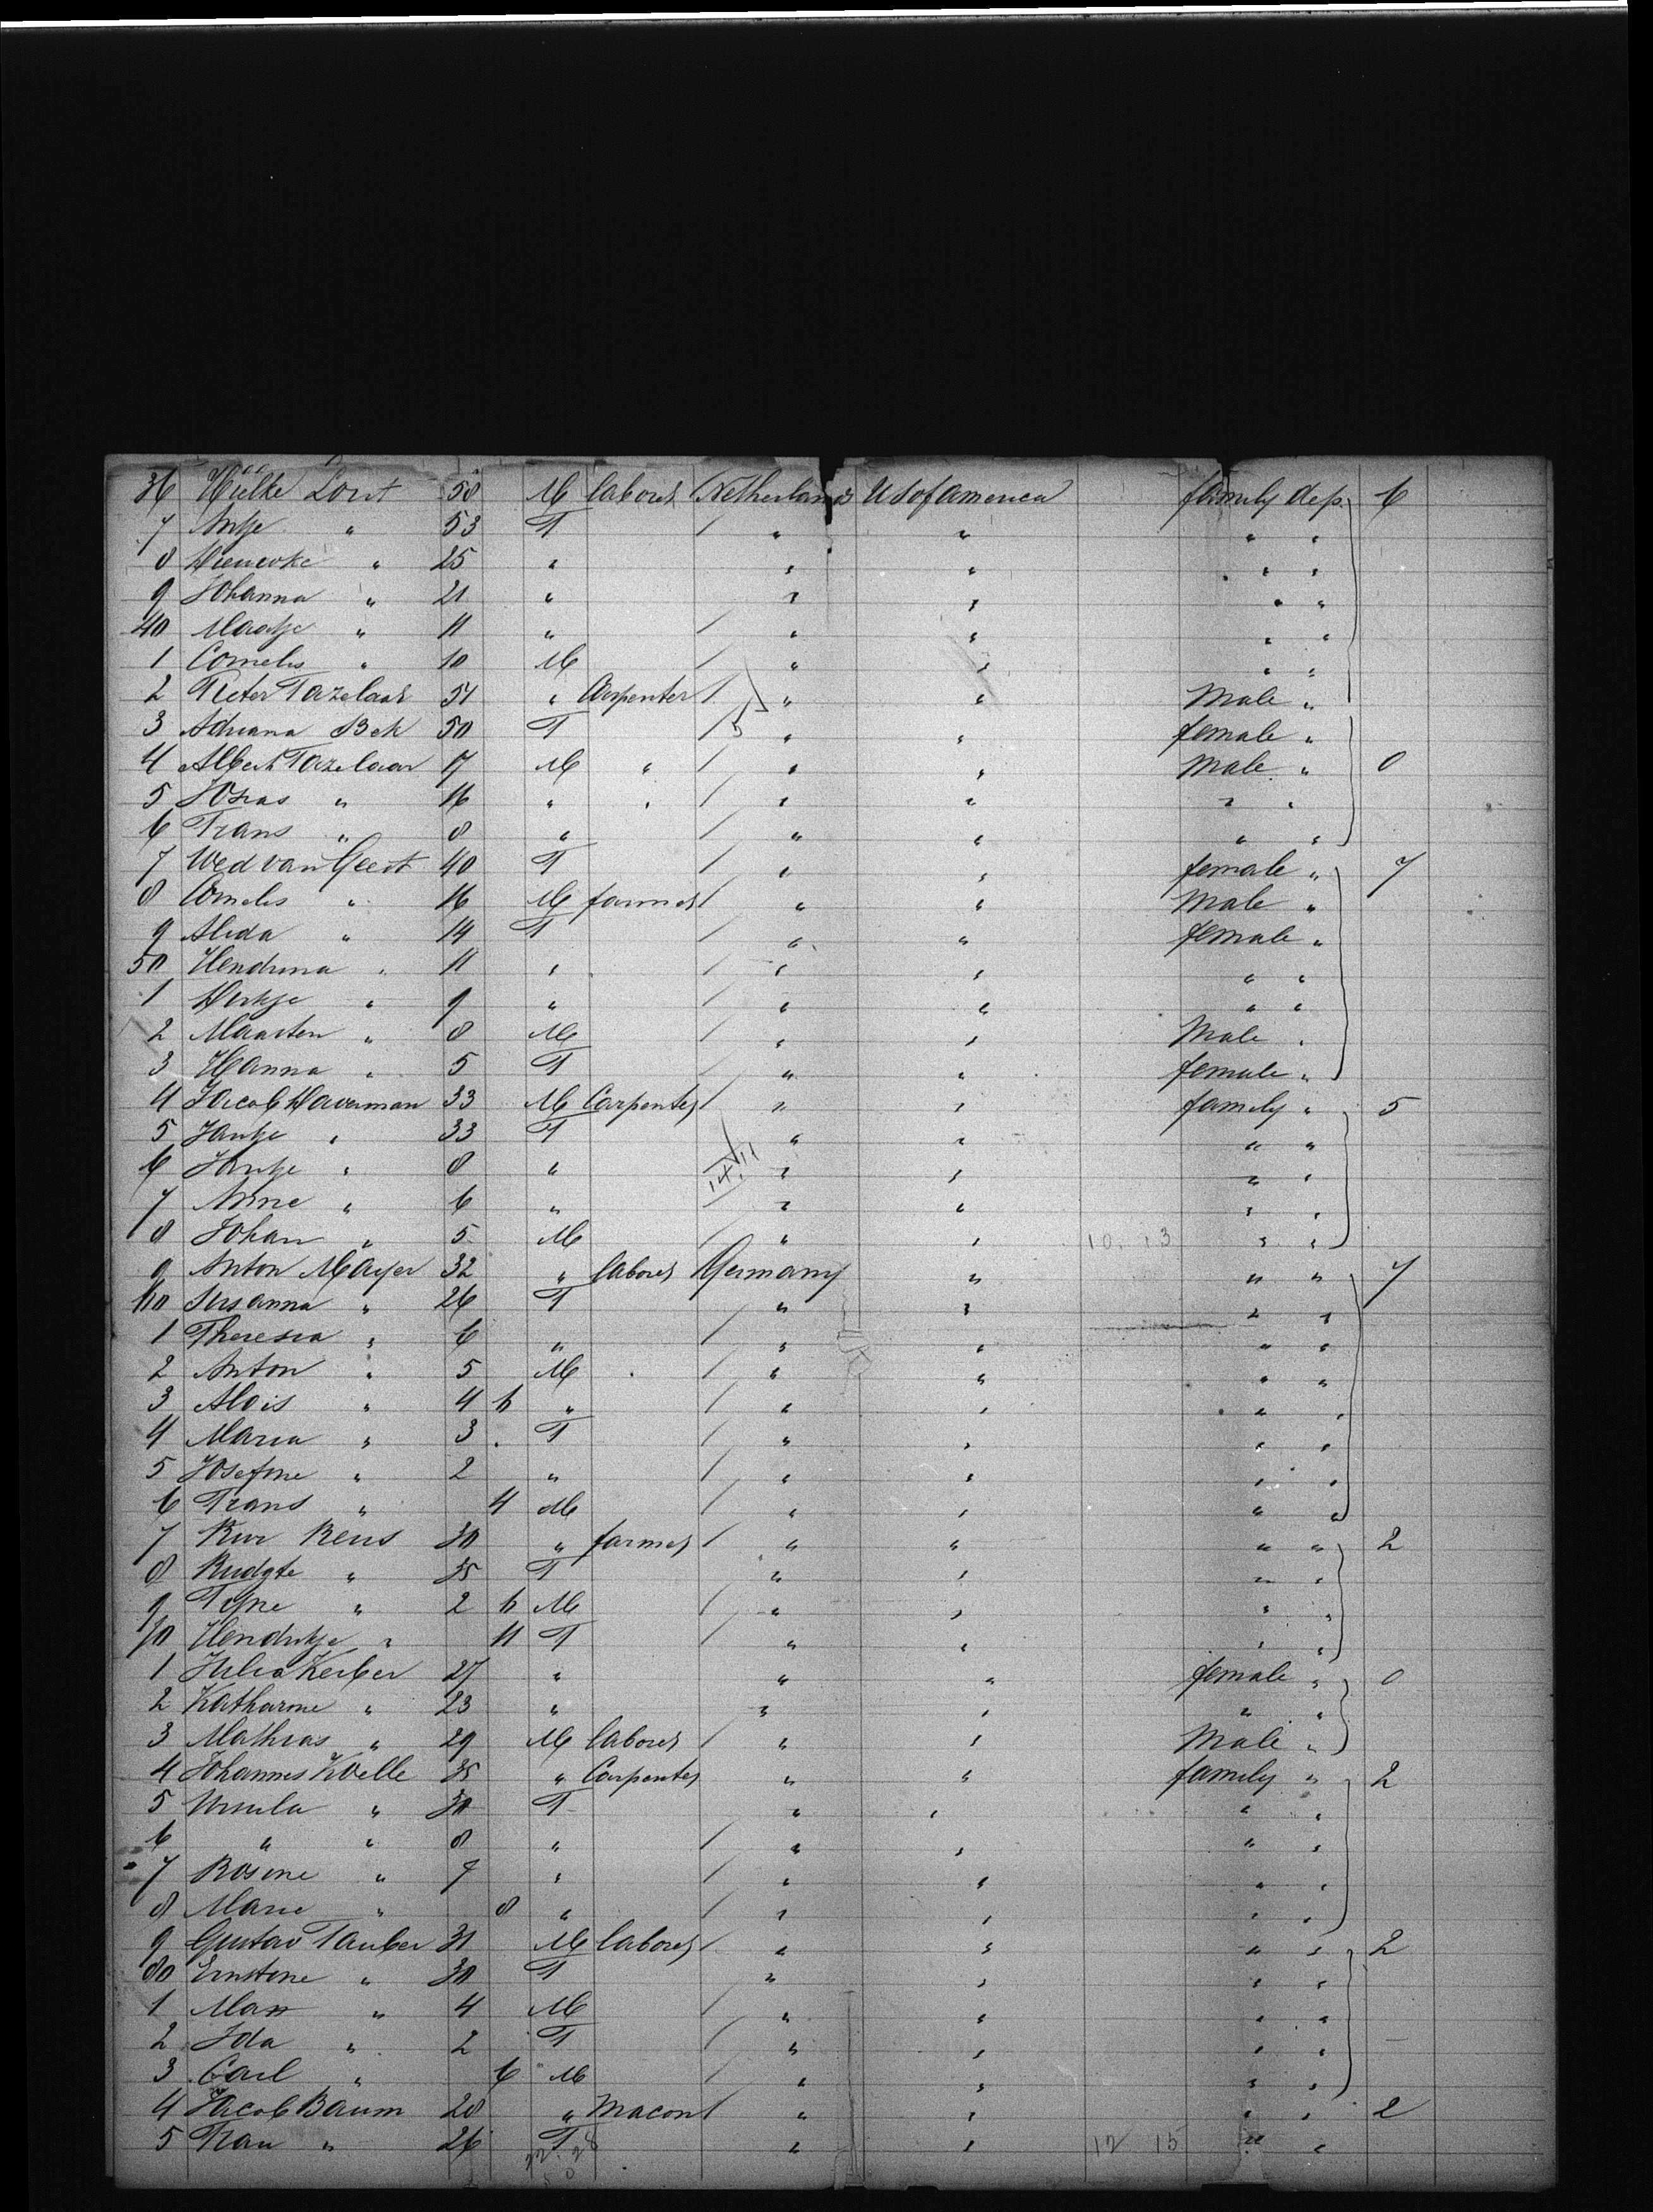 36 Hielke Lont 58 M labour Netherlands U S of America family dep. 6
7 Antje " 53 F " " " "
8 " 25 " " " " "
9 Johanna " 21 " " " " "
40 Maatje " 11 " " " " "
1 Cornelis " 10 M " " " "
2 Pieter Tazelaar 51 " Carpenter " " Male "
3 Adriana Bek 50 F " " female "
4 Albert Tazelaar 17 M " " " Male " 0
5 Josias " 16 " " " " " "
6 Frans " 8 " " " " "
7 Wed van Geest 40 F " " female " 7
8 Cornelis " 16 M farmer " " Male "
9 Alida " 14 F " " female "
50 Hendrina " 11 " " " " "
1 Dirkje " 9 " " " " "
2 Maarten " 8 M " " Male "
3 Hanna " 5 F " " female "
4 Jacob Haverman 33 M Carpenter " " family " 5
5 Jantje " 33 F " " " "
6 Jantje " 8 " " " " "
7 Anne " 6 " " " " "
8 Johan " 5 M " " 10. 13 " "
9 Anton Mayer 32 " labour Germany " " " 7
60 Susanna " 26 F " " " "
1 Theresia " 6 " " " " "
2 Anton " 5 M " " " "
3 Alois " 4 " " " " "
4 Maria " 3 F " " " "
5 Josefine " 2 " " " " "
6 Frans " 4 M " " " "
7 Reus 30 " farmer " " " " 2
8 " 35 F " " " "
9 " 2 M " " " "
70 Hendrikje " 11 F " " " "
1 Julia Kerber 27 " " " female " 0
2 Katharine " 23 " " " " "
3 Mathias " 29 M labour " " Male "
4 Johannes Kölle 35 " Carpenter " " family " 2
5 Ursula " 30 F " " " "
6 " " 8 " " " " "
7 Rosine " 7 " " " " "
8 Marie " 8 " " " " "
9 Gustav Tauber 31 M labour " " " " 2
80 Ernstine " 30 F " " " "
1 Max " 4 M " " " "
2 Ida " 2 F " " " "
3 Carl " 6 M " " " "
4 Jacob Baum 28 " Macon " " " " 2
5 Frau " 26 F " " 12 15 " "